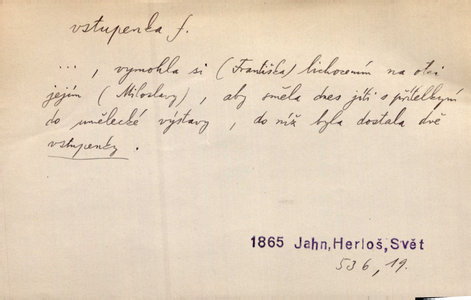 vstupenka f.
..., vymohla si (Františka) lichocením na otci
jejím (Miloslavy), aby směla dnes jíti s přítelkyní
do umělecké výstavy, do níž byla dostala dvě
vstupenky.
1865 Jahn, Herloš, Svět
536, 19.